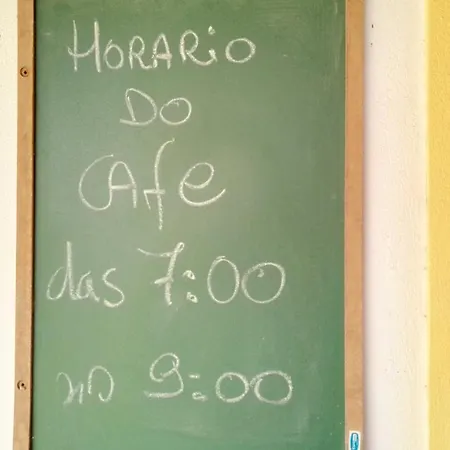 HORARiO
DO
CAfe
das 7:00
as 9:00